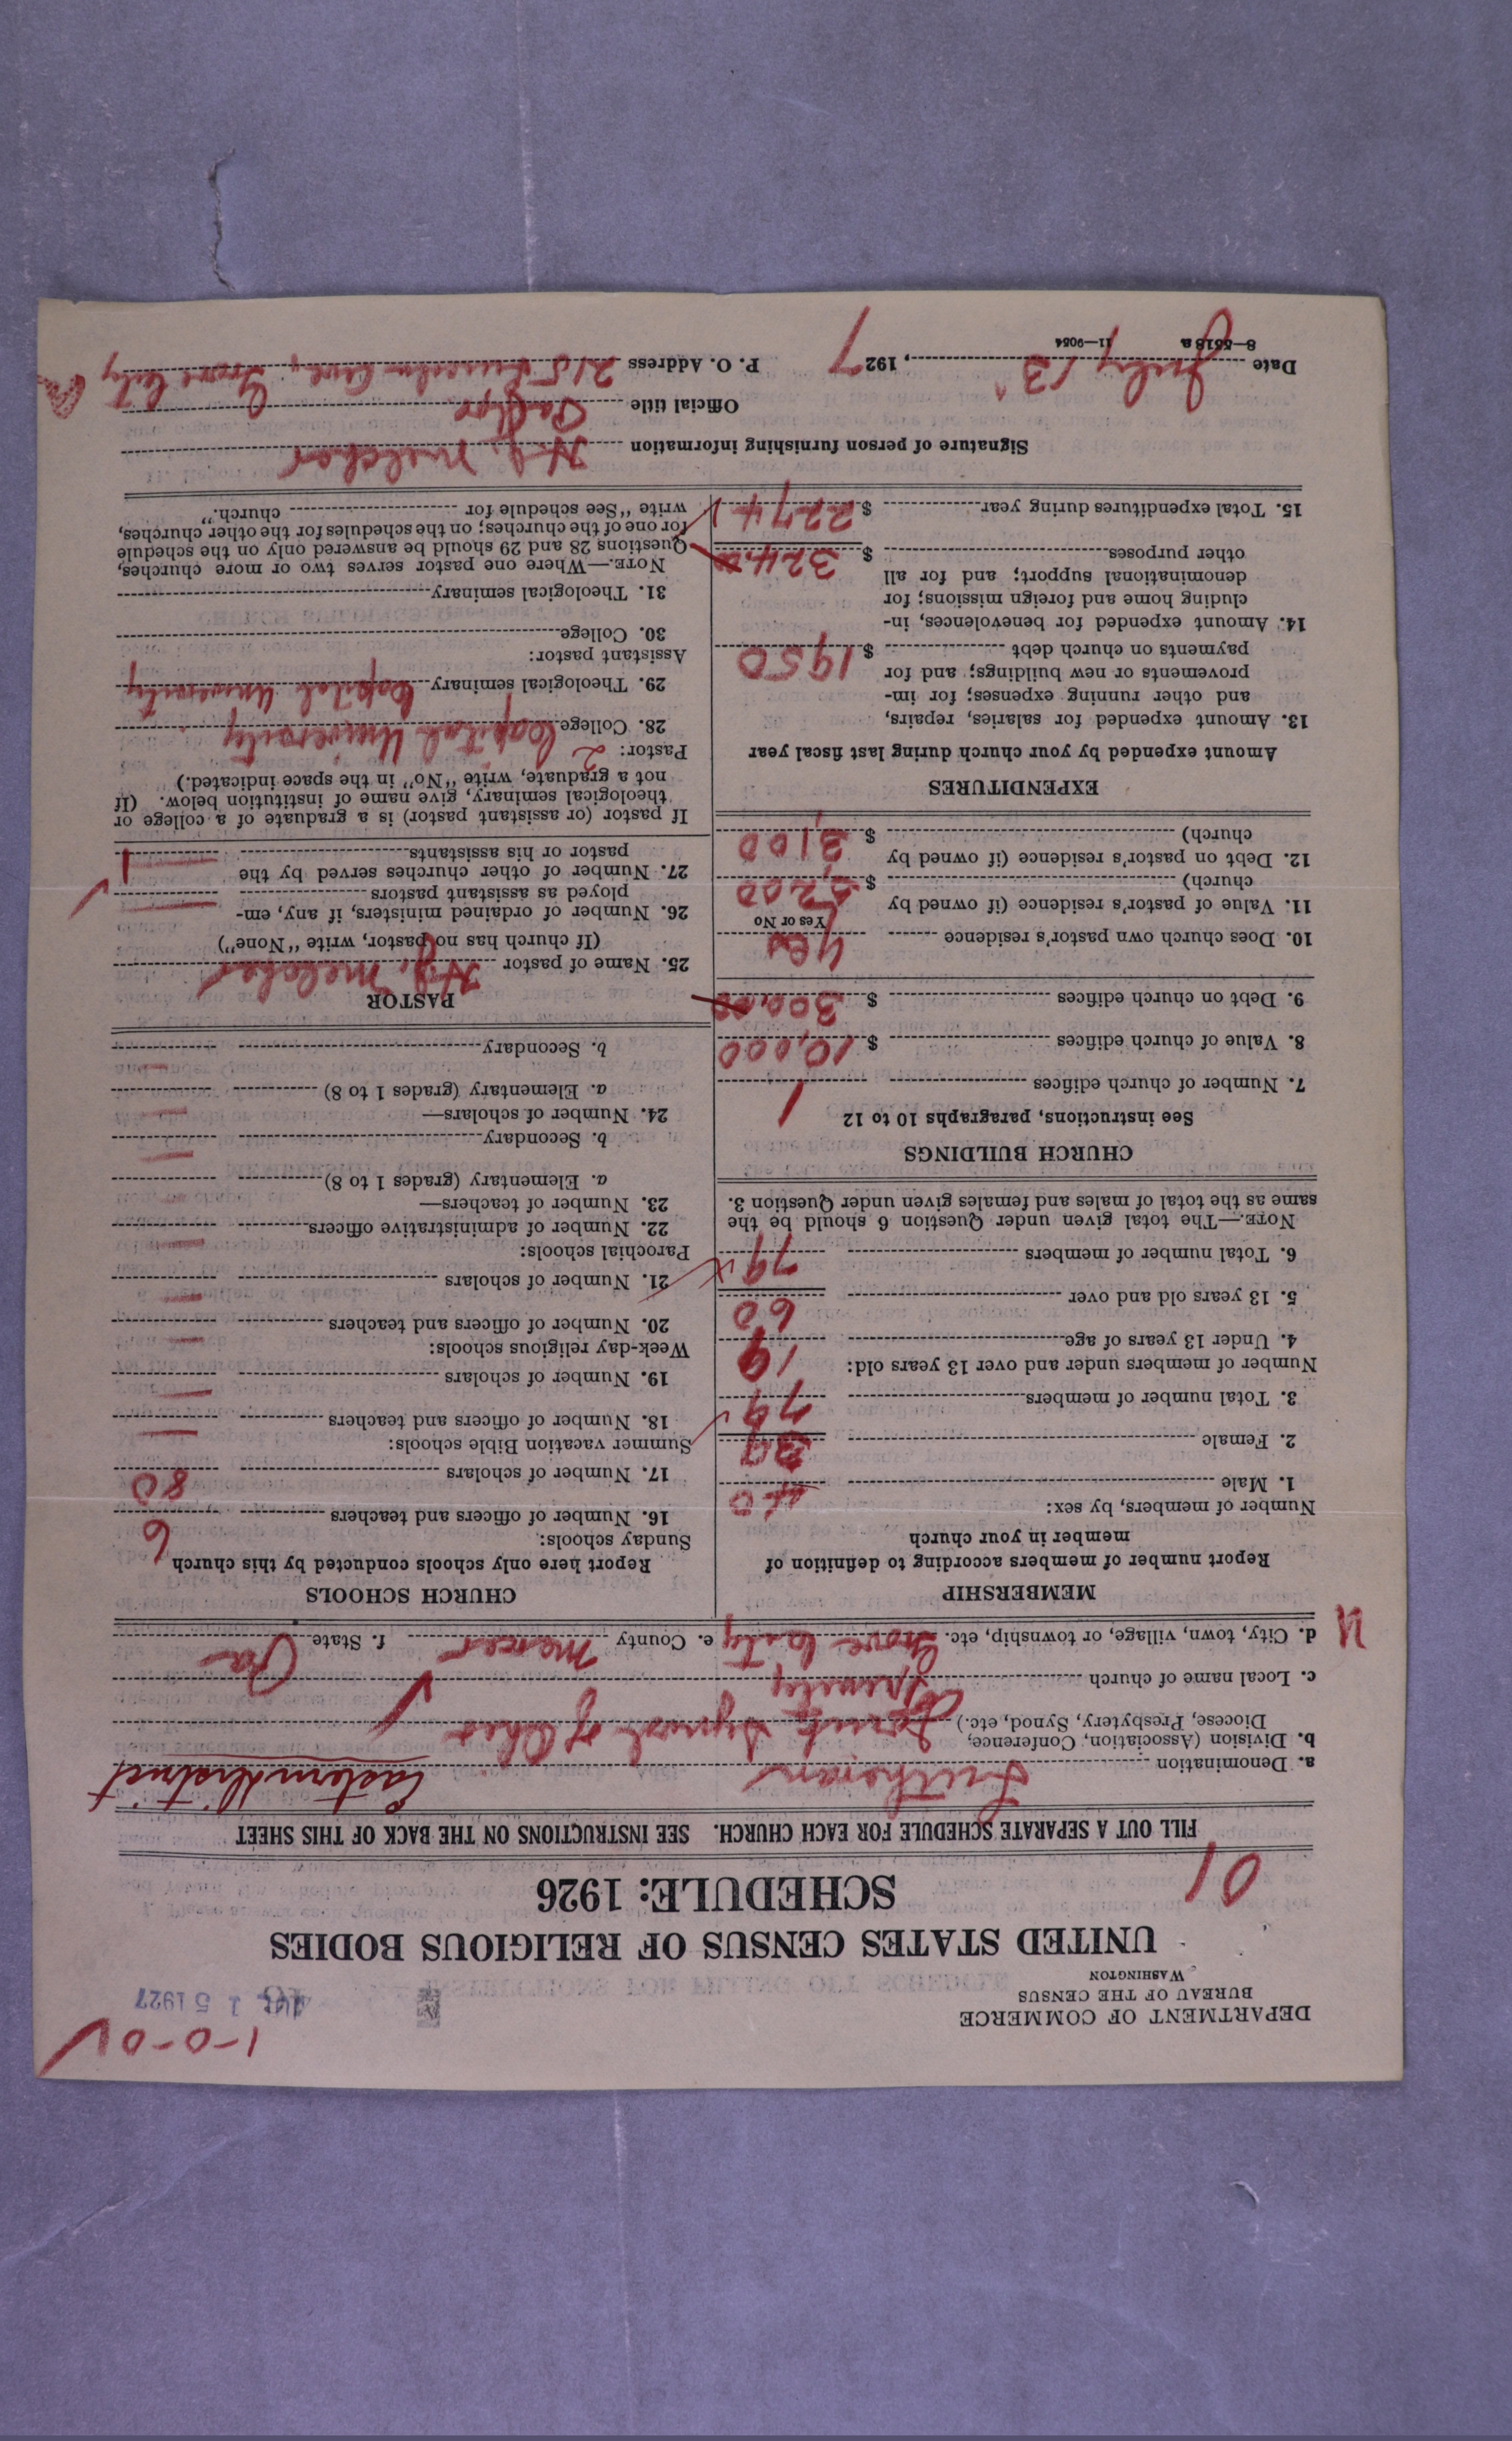 1-0-0 ✓
DEPARTMENT OF COMMERCE
BUREAU OF THE CENSUS
WASHINGTON
15 1927
UNITED STATES CENSUS OF RELIGIOUS BODIES
SCHEDULE: 1926
01
FILL OUT A SEPARATE SCHEDULE FOR EACH CHURCH. SEE INSTRUCTIONS ON THE BACK OF THIS SHEET
a. Denomination Lutheran Eastern District
b. Division (Association, Conference, Diocese, Presbytery, Synod, etc.) Joint Synod of Ohio ✓
c. Local name of church Trinity
d. City, town, village, or township, etc. Grove City e. County Mercer f. State Pa
MEMBERSHIP
Report number of members according to definition of
member in your church
Number of members, by sex:
1. Male 40
2. Female 39
3. Total number of members 79 ✓
Number of members under and over 13 years old:
4. Under 13 years of age 19
5. 13 years old and over 60
6. Total number of members 79
NOTE.—The total given under Question 6 should be the
same as the total of males and females given under Question 3.
CHURCH BUILDINGS
See instructions, paragraphs 10 to 12
7. Number of church edifices 1
8. Value of church edifices $ 10,000
9. Debt on church edifices $ 300.00
10. Does church own pastor's residence Yes
Yes or No
11. Value of pastor's residence (if owned by
church) $ 5,200
12. Debt on pastor's residence (if owned by
church) $ 3,100
EXPENDITURES
Amount expended by your church during last fiscal year
13. Amount expended for salaries, repairs,
and other running expenses; for im-
provements or new buildings; and for
payments on church debt $ 1950
14. Amount expended for benevolences, in-
cluding home and foreign missions; for
denominational support; and for all
other purposes $ 324
15. Total expenditures during year $ 2274
CHURCH SCHOOLS
Report here only schools conducted by this church
Sunday schools:
16. Number of officers and teachers 6
17. Number of scholars 80
Summer vacation Bible schools:
18. Number of officers and teachers —
19. Number of scholars —
Week-day religious schools:
20. Number of officers and teachers —
21. Number of scholars —
Parochial schools:
22. Number of administrative officers —
23. Number of teachers—
a. Elementary (grades 1 to 8) —
b. Secondary —
24. Number of scholars—
a. Elementary (grades 1 to 8) —
b. Secondary —
PASTOR
25. Name of pastor H. J. Melcher
(If church has no pastor, write "None")
26. Number of ordained ministers, if any, em-
ployed as assistant pastors —
27. Number of other churches served by the
pastor or his assistants 1
If pastor (or assistant pastor) is a graduate of a college or
theological seminary, give name of institution below. (If
not a graduate, write "No" in the space indicated.)
Pastor: 2
28. College Capital University
29. Theological seminary Capital University
Assistant pastor:
30. College
31. Theological seminary
NOTE.—Where one pastor serves two or more churches,
Questions 28 and 29 should be answered only on the schedule
for one of the churches; on the schedules for the other churches,
write "See schedule for church."
Signature of person furnishing information H. J. Melcher
Official title Pastor
Date July 13, 1927 P. O. Address 215 Lincoln Ave., Grove City Pa
8—5518 a 11—9054